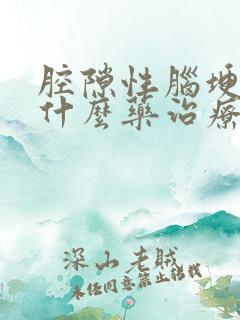 腔隙性腦埂
什麼藥治療
深山老賊
未任同意禁止轉載